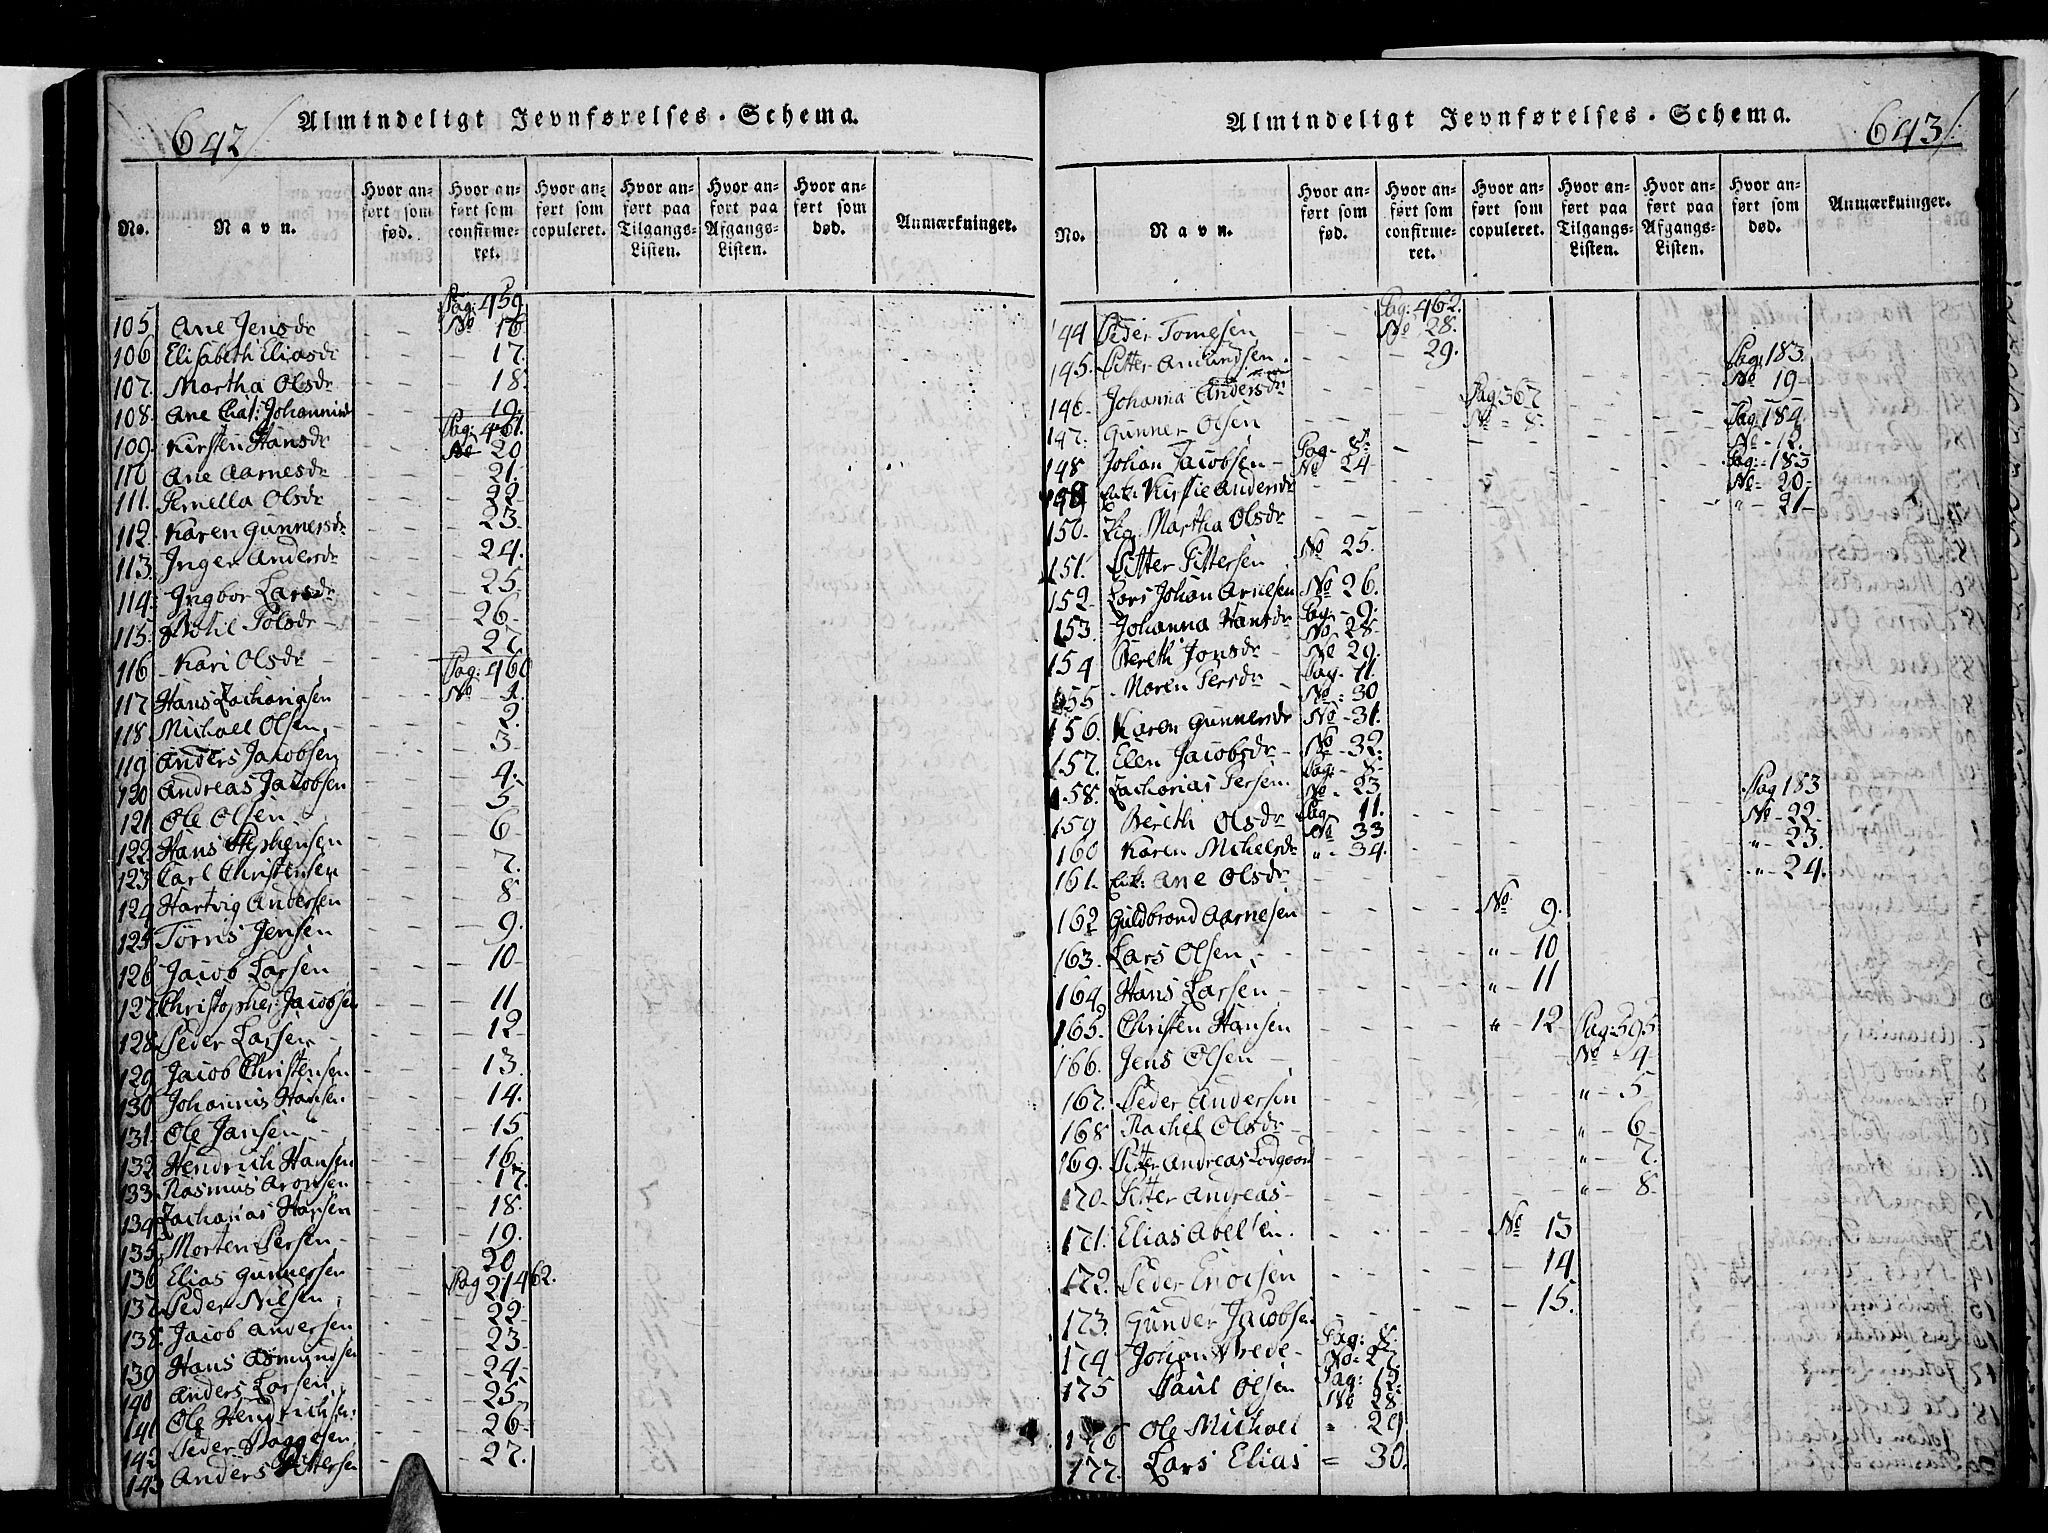 642/
Almindeligt Jevnførelses-Schema.
No.
Navn.
Hvor an-
ført som
fød.
Hvor an-
ført som
confirme-
ret.
Hvor an-
ført som
copuleret.
Hvor an-
ført paa
Tilgangs-
Listen.
Hvor an-
ført paa
Afgangs-
Listen.
Hvor an-
ført som
død.
Anmærkninger.
Pag: 459
105. Ane Jensdr - - No 16.
106. Elisabeth Eliasdr - - 17.
107. Martha Olsdr - - 18.
108. Ane Chat: Johannisd - - 19.
Pag: 461.
109. Kirsten Hansdr - - No 20
110 Ane Aarnesdr - - 21.
111. Pernella Olsdr - - 22
112. Karen Gunnersdr - - 23.
113. Inger Andersdr - - 24.
114. Ingbor Larsdr - - 25.
115. Bohil Polsdr - - 26.
116. Kari Olsdr - - 27
Pag: 460
117 Hans Zachariasen - - No 1.
118 Michael Olsen - - 2.
119 Anders Jacobsen - - 3.
120 Andreas Jacobsen - - 4.
121 Ole Olsen - - 5
122. Hans Stephensen - - 6
123 Carl Christensen - - 7.
124 Hartvig Andersen - - 8
125 Törris Jensen - - 9.
126 Jacob Larsen - - 10
127. Christopher Jacobsen - - 11.
128. Peder Larsen - - 12
129 Jacob Christensen - - 13.
130 Johannis Hansen - - 14.
131. Ole Jansen - - 15
132 Hendrich Hansen - - 16
133. Rasmus Aronsen - - 17.
134 Zacharias Hansen - - 18.
135. Morten Persen - - 19.
136 Elias Gunnersen - - 20
Pag 462.
137. Peder Nilsen - - 21
138. Jacob Andersen - - 22
139 Hans Asmundsen - - 23
140 Anders Larsen - - 24
141 Ole Hendrichsen - - 25
142 Peder Aaggesen - - 26
143 Anders Pittersen - - 27.
643/
Almindeligt Jevnførelses-Schema.
No.
Navn.
Hvor an-
ført som
fød.
Hvor an-
ført som
confirme-
ret.
Hvor an-
ført som
copuleret.
Hvor an-
ført paa
Tilgangs-
Listen.
Hvor an-
ført paa
Afgangs-
Listen.
Hvor an-
ført som
død.
Anmærkninger.
Pag: 462.
144 Peder Tomesen - - No 28.
145. Pitter Amundsen - - 29.
Pag: 183.
146. Johanna Andersdr - - No 19
Pag: 367
147. Gunner Olsen - - No = 8.
Pag: 8. Pag: 184
148 Johan Jacobsen - No 24 - No - 12.
Pag: 183
149 Enk: Kirstie Andersdr - - No - 20
150. Pig. Martha Olsdr - - " - 21
151. Pitter Pittersen No 25.
152 Lars Johan Arnesen No 26.
Pag - 9.
153. Johanna Hansdr No 28
154 Bereth Jonsdr No 29.
Pag. 11.
155 Maren Persdr No = 30
156. Karen Gunnersdr No - 31.
157. Elen Jacobsdr No - 32.
Pag - 8
158. Zacharias Persen No - 23
Pag 11. Pag 183
159 Bereth Olsdr No 33 - - No - 22
160 Karen Michelsdr " - 34. - - " - 23.
161. Enk: Ane Olsdr - - " - 24.
162 Guldbrand Aarnesen - - No 9.
163. Lars Olsen - - " - 10
164 Hans Larsen - - " - 11
165. Christen Hansen - - " - 12
Pag: 595
166. Jens Olsen - - No = 4
167. Peder Andersen - - " - 5
168 Rachel Olsdr - - " - 6
169. Pitter Andreas Lodgaard - - " - 7.
170 Pitter Andreas - - " - 8
171. Elias Abelsen - - No 13
172. Peder Enocsen - - 14
173. Gunder Jacobsen - - 15.
Pag: 8.
174 Johan Vrede No = 27.
Pag: 15
175 Paul Olsen No 28.
176 Ole Michael " 29
177. Lars Elias = 30.